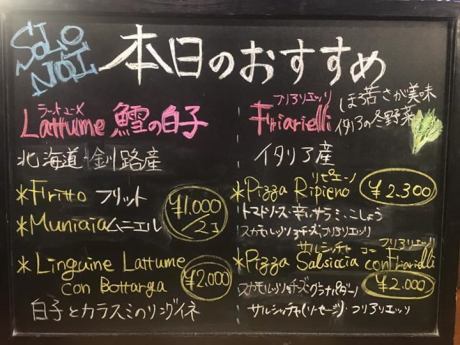 SOLO NOI
本日のおすすめ
ラットューメ
Lattume 鱈の白子
北海道 釧路産
*Fritto フリット
*Muniaia ムニエル
¥1.000/2コ
*Linguine Lattume
con Bottarga
¥2.000
白子とカラスミのリングイネ
フリアリエッリ
Friarielli
ほろ苦さが美味
イタリアの冬野菜
イタリア産
リピエーノ
*Pizza Ripieno ¥2.300
トマトソース・辛いサラミ・こしょう
スカモルツァチーズ・フリアリエッリ
サルシッチャ コン フリアリエッリ
*Pizza Salsiccia con Friarielli
スカモルツァチーズ・グラナパダーノ
¥2.000
サルシッチャ(ソーセージ)・フリアリエッリ